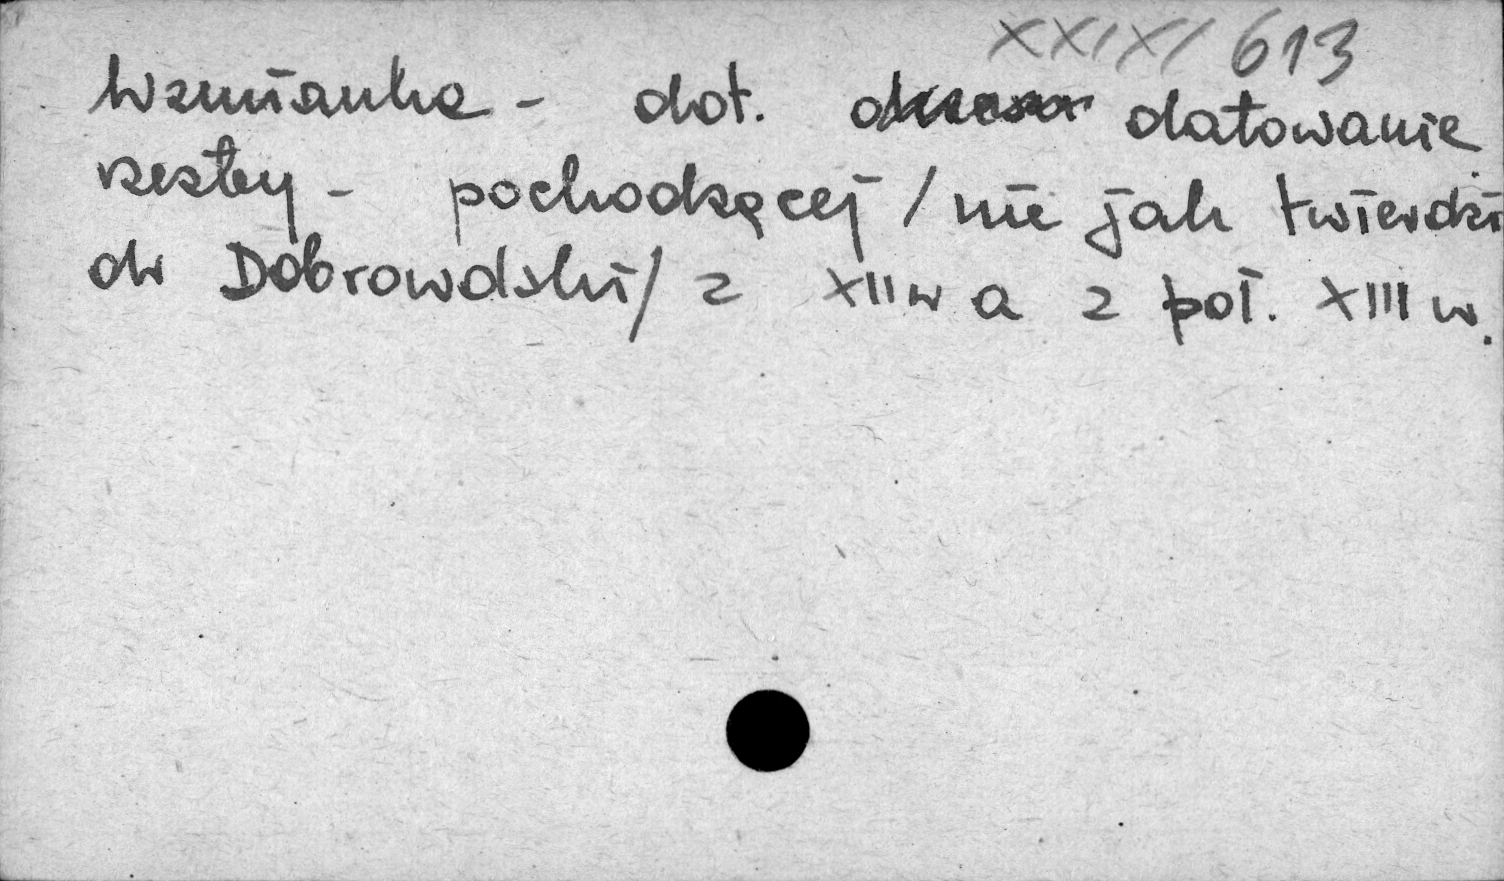 XXIXI 613
Wzmianka - dot. datowanie
rzeźby - pochodzącej / nie jak twierdzi
dr Dobrowolski / z XII w a z poł. XIII w.